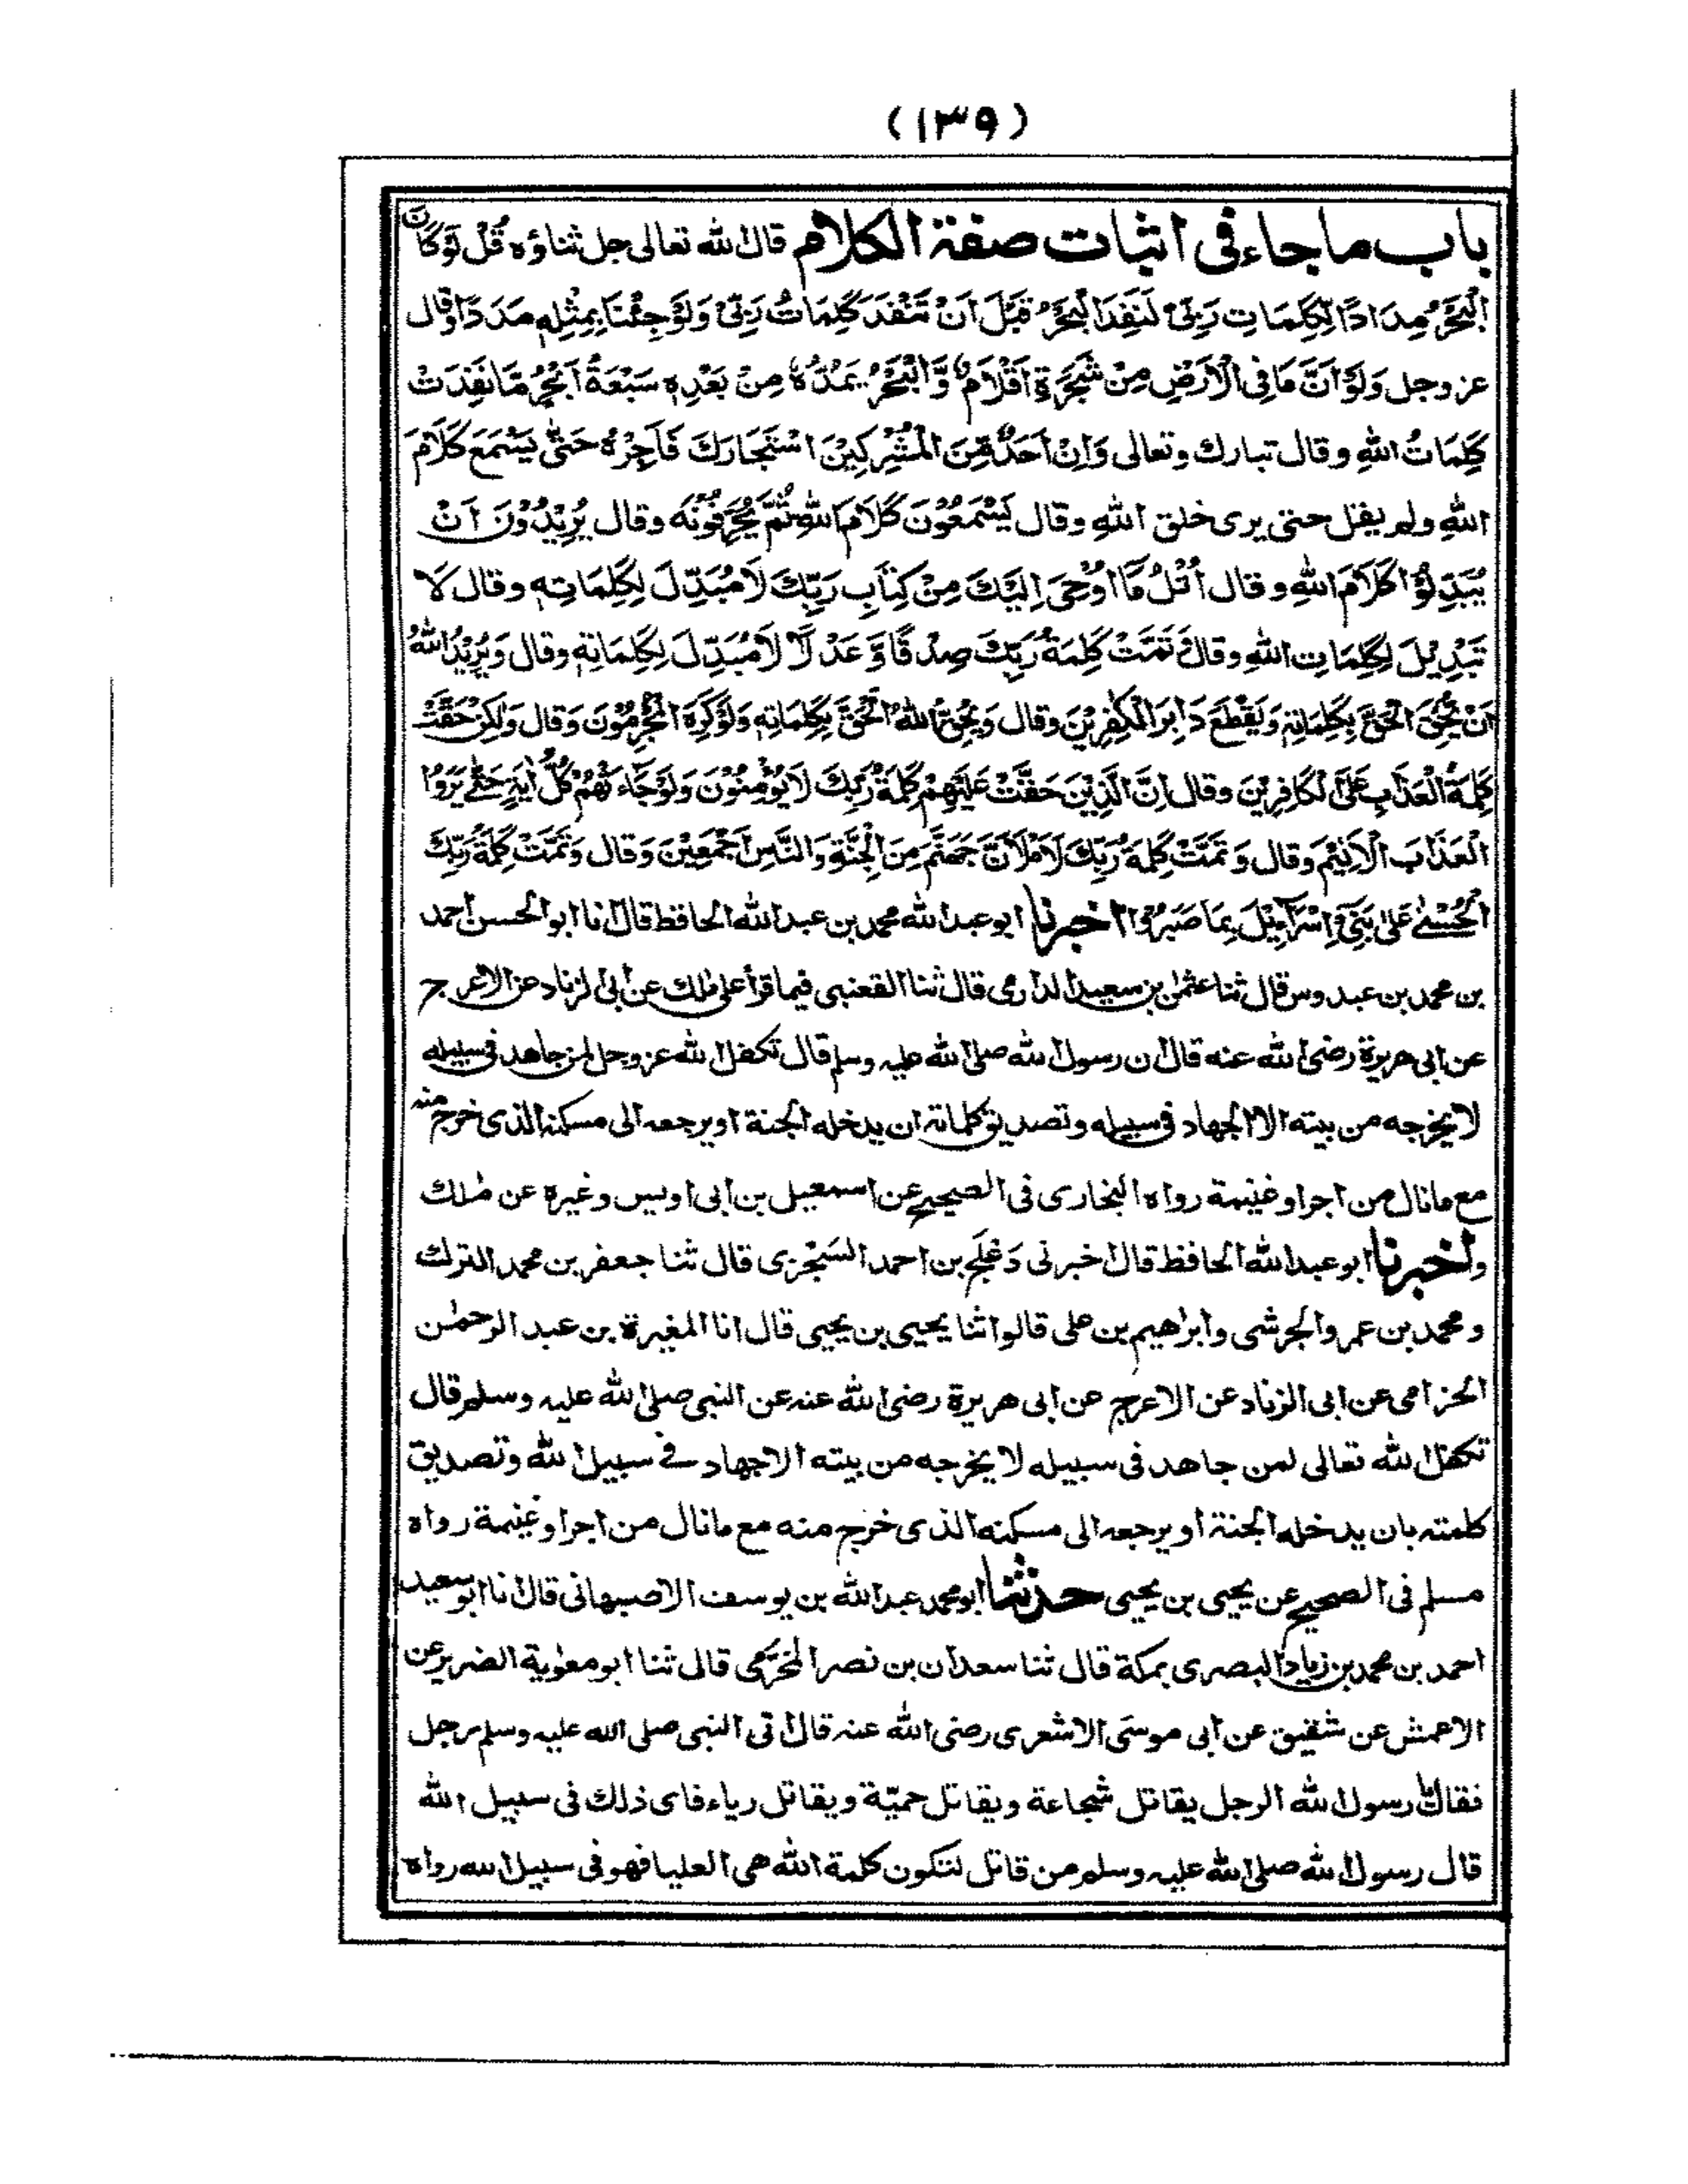 (١٣٩)
باب ماجاء فی اثبات صفة الكلام قال الله تعالى جل ثناؤه قُلْ لَوْ كَانَ
الْبَحْرُ مِدَادًا لِّكَلِمَاتِ رَبِّیْ لَنَفِدَ الْبَحْرُ قَبْلَ اَنْ تَنْفَدَ كَلِمَاتُ رَبِّیْ وَلَوْ جِئْنَا بِمِثْلِهٖ مَدَدًا وقال
عز وجل وَلَوْ اَنَّ مَا فِی الْاَرْضِ مِنْ شَجَرَةٍ اَقْلَامٌ وَّالْبَحْرُ يَمُدُّهٗ مِنْ بَعْدِهٖ سَبْعَةُ اَبْحُرٍ مَّا نَفِدَتْ
كَلِمَاتُ اللهِ وقال تبارك وتعالى وَاِنْ اَحَدٌ مِّنَ الْمُشْرِكِيْنَ اسْتَجَارَكَ فَاَجِرْهُ حَتّٰى يَسْمَعَ كَلَامَ
اللهِ ولم يقل حتى يرى خلق اللهِ وقال يَسْمَعُوْنَ كَلَامَ اللهِ ثُمَّ يُحَرِّفُوْنَهٗ وقال يُرِيْدُوْنَ اَنْ
يُبَدِّلُوْا كَلَامَ اللهِ وقال اُتْلُ مَا اُوْحِىَ اِلَيْكَ مِنْ كِتَابِ رَبِّكَ لَا مُبَدِّلَ لِكَلِمَاتِهٖ وقال لَا
تَبْدِيْلَ لِكَلِمَاتِ اللهِ وقال وَتَمَّتْ كَلِمَةُ رَبِّكَ صِدْقًا وَّعَدْلًا لَا مُبَدِّلَ لِكَلِمَاتِهٖ وقال وَيُرِيْدُ اللهُ
اَنْ يُّحِقَّ الْحَقَّ بِكَلِمَاتِهٖ وَيَقْطَعَ دَابِرَ الْكٰفِرِيْنَ وقال وَيُحِقُّ اللهُ الْحَقَّ بِكَلِمَاتِهٖ وَلَوْ كَرِهَ الْمُجْرِمُوْنَ وَقال وَلٰكِنْ حَقَّتْ
كَلِمَةُ الْعَذَابِ عَلَى الْكَافِرِيْنَ وقال اِنَّ الَّذِيْنَ حَقَّتْ عَلَيْهِمْ كَلِمَةُ رَبِّكَ لَا يُؤْمِنُوْنَ وَلَوْ جَاءَتْهُمْ كُلُّ اٰيَةٍ حَتّٰى يَرَوُا
الْعَذَابَ الْاَلِيْمَ وقال وَتَمَّتْ كَلِمَةُ رَبِّكَ لَاَمْلَاَنَّ جَهَنَّمَ مِنَ الْجِنَّةِ وَالنَّاسِ اَجْمَعِيْنَ وَقال وَتَمَّتْ كَلِمَةُ رَبِّكَ
الْحُسْنٰى عَلٰى بَنِیْ اِسْرَآئِيْلَ بِمَا صَبَرُوْا اخبرنا ابو عبد الله محمد بن عبد الله الحافظ قال انا ابو الحسن احمد
بن محمد بن عبدوس قال ثنا عثمٰن بن سعيد الدارمی قال ثنا القعنبی فيما قرأ على مٰلك عن ابی الزناد عن الاعرج
عن ابی هريرة رضی الله عنه قال ان رسول الله صلى الله عليه وسلم قال تكفل الله عز وجل لمن جاهد فی سبيله
لا يخرجه من بيته الا الجهاد فی سبيله وتصديق كلماته ان يدخله الجنة او يرجعه الى مسكنه الذی خرج منه
مع ما نال من اجر او غنيمة رواه البخاری فی الصحيح عن اسمعيل بن ابی اويس وغيره عن مٰلك
واخبرنا ابو عبد الله الحافظ قال اخبرنی دَعْلَج بن احمد السِّجْزی قال ثنا جعفر بن محمد الترك
ومحمد بن عمرو الجرشی وابراهيم بن علی قالوا ثنا يحيى بن يحيى قال انا المغيرة بن عبد الرحمٰن
الحزامی عن ابی الزناد عن الاعرج عن ابی هريرة رضی الله عنه عن النبی صلى الله عليه وسلم قال
تكفل الله تعالى لمن جاهد فی سبيله لا يخرجه من بيته الا جهاد فی سبيل الله وتصديق
كلمته بان يدخله الجنة او يرجعه الى مسكنه الذی خرج منه مع ما نال من اجر او غنيمة رواه
مسلم فی الصحيح عن يحيى بن يحيى حدثنا ابو محمد عبد الله بن يوسف الاصبهانی قال انا ابو سعيد
احمد بن محمد بن زياد البصری بمكة قال ثنا سعدان بن نصر المُخَرِّمی قال ثنا ابو معٰوية الضرير عن
الاعمش عن شقيق عن ابی موسَى الاشعری رضی الله عنه قال اتى النبی صلى الله عليه وسلم رجل
فقال يا رسول الله الرجل يقاتل شجاعة ويقاتل حميّة ويقاتل رياء فای ذلك فی سبيل الله
قال رسول الله صلى الله عليه وسلم من قاتل لتكون كلمة الله هی العليا فهو فی سبيل الله رواه